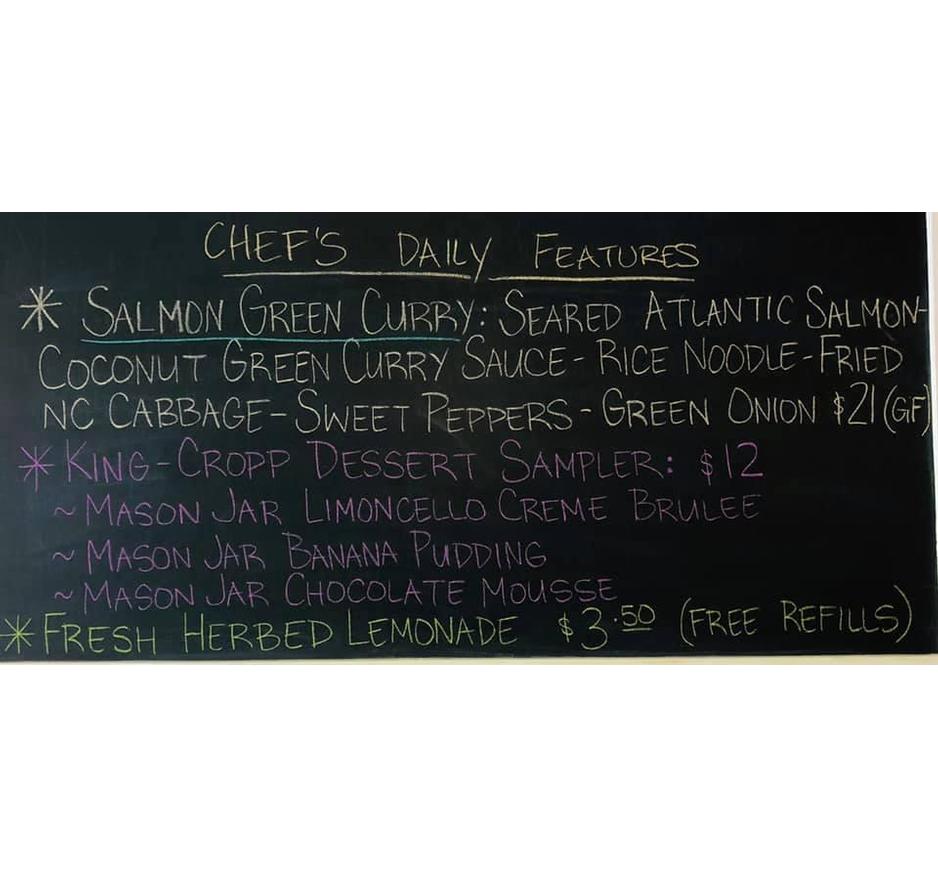 CHEF'S DAILY FEATURES
* SALMON GREEN CURRY: SEARED ATLANTIC SALMON-
COCONUT GREEN CURRY SAUCE - RICE NOODLE - FRIED
NC CABBAGE - SWEET PEPPERS - GREEN ONION $21 (GF)
* KING-CROPP DESSERT SAMPLER: $12
~ MASON JAR LIMONCELLO CREME BRULEE
~ MASON JAR BANANA PUDDING
~ MASON JAR CHOCOLATE MOUSSE
* FRESH HERBED LEMONADE $3.50 (FREE REFILLS)